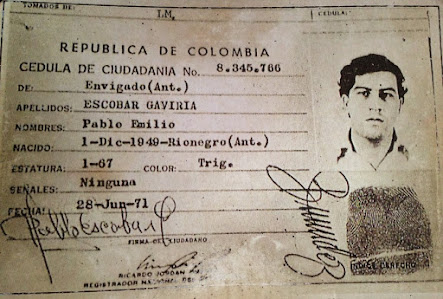 TOMADOS DE: I.M. CEDULA:
REPUBLICA DE COLOMBIA
CEDULA DE CIUDADANIA No. 8.345.766
DE: Envigado(Ant.)
APELLIDOS: ESCOBAR GAVIRIA
NOMBRES: Pablo Emilio
NACIDO: 1-Dic-1949-Rionegro(Ant.)
ESTATURA: 1-67 COLOR: Trig.
SEÑALES: Ninguna
FECHA: 28-Jun-71
Pablo Escobar G
FIRMA DEL CIUDADANO
INDICE DERECHO
RICARDO JORDAN
REGISTRADOR